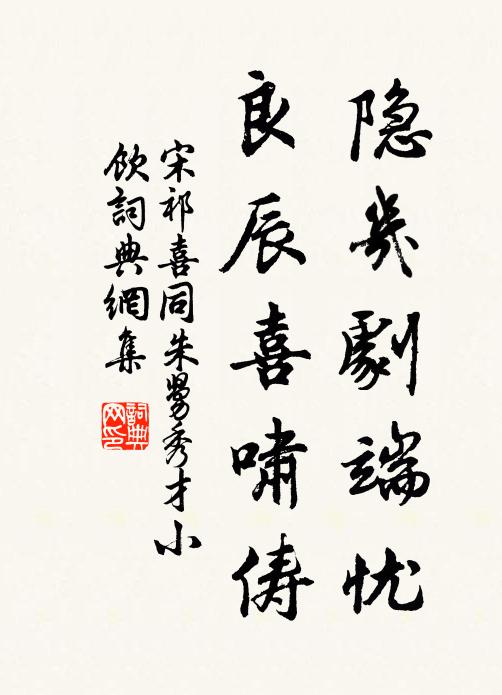 隐幾劇端忧
良辰喜啸俦
宋祁喜同朱㽦秀才小
饮詞典網集
詞典网印